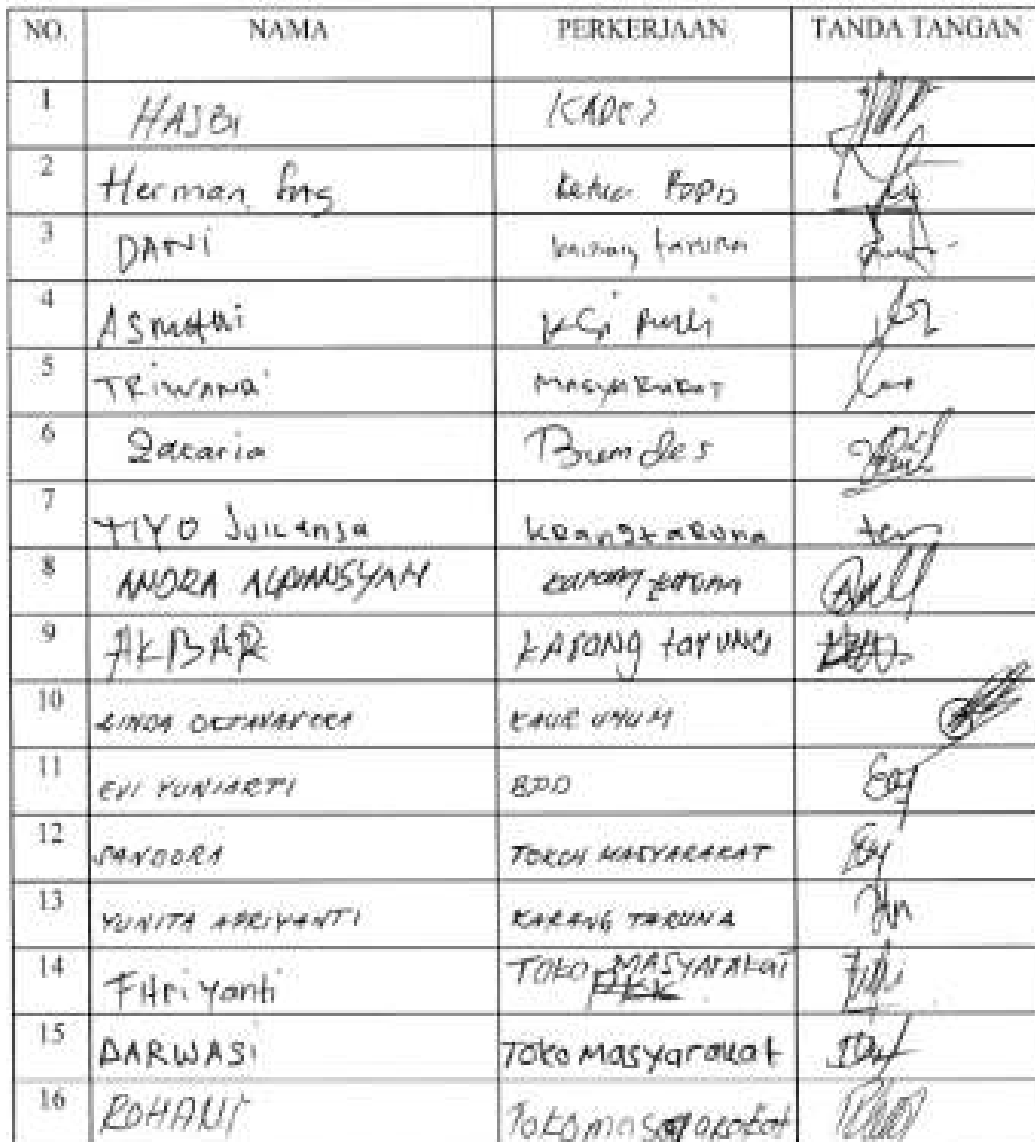 NO. NAMA PERKERJAAN TANDA TANGAN
1 HASBI KADES
2 Herman Ketua BPD
3 DANI karang taruna
4 Asmathi
5 TRiwandi MASyARAKAT
6 Zacaria Bumdes
7 TIYO Juliansa kRangtaRuna
8 ANDRA ALPIANSYAH karang taruna
9 AKBAR KARANG taruna
10 LINDA KAUR UMUM
11 EVI YUNIARTI BPD
12 PANDORA TOKOH MASYARAKAT
13 YUNITA APRIYANTI KARANG TARUNA
14 Fitri Yanti TOKO MASYARAKAT
15 DARWASi Toko masyarakat
16 ROHANI Toko masyarakat